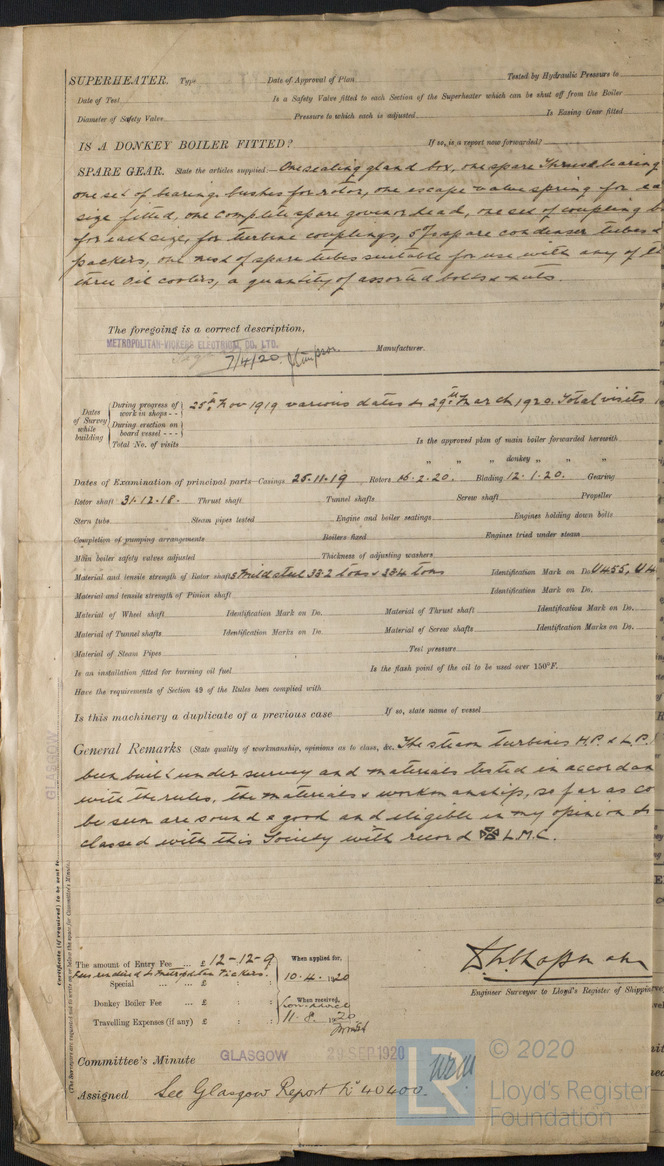 SUPERHEATER. Type Date of Approval of Plan Tested by Hydraulic Pressure to
Date of Test Is a Safety Valve fitted to each Section of the Superheater which can be shut off from the Boiler
Diameter of Safety Valve Pressure to which each is adjusted Is Easing Gear fitted
IS A DONKEY BOILER FITTED? If so, is a report now forwarded?
SPARE GEAR. State the articles supplied:— One sealing gland box, one spare Thrust bearing
one set of bearing bushes for rotor, one escape valve spring for ea
size fitted, one complete spare govenor head, one set of coupling b
for each size, for turbine couplings, 5% spare condenser tubes &
packers, one nest of spare tubes suitable for use with any of th
three oil coolers, a quantity of assorted bolts & nuts.
The foregoing is a correct description,
METROPOLITAN-VICKERS ELECTRICAL CO. LTD.
7/4/20. Manufacturer.
Dates of Survey while building
During progress of work in shops - - 25th Nov 1919 various dates to 29th March 1920. Total visits
During erection on board vessel - - -
Total No. of visits Is the approved plan of main boiler forwarded herewith
" " " donkey " " "
Dates of Examination of principal parts—Casings 25.11.19 Rotors 16.2.20. Blading 12.1.20. Gearing
Rotor shaft 31.12.18. Thrust shaft Tunnel shafts Screw shaft Propeller
Stern tube Steam pipes tested Engine and boiler seatings Engines holding down bolts
Completion of pumping arrangements Boilers fixed Engines tried under steam
Main boiler safety valves adjusted Thickness of adjusting washers
Material and tensile strength of Rotor shafts Mild steel 33.2 tons & 33.4 tons Identification Mark on Do. U455, U4
Material and tensile strength of Pinion shaft Identification Mark on Do.
Material of Wheel shaft Identification Mark on Do. Material of Thrust shaft Identification Mark on Do.
Material of Tunnel shafts Identification Marks on Do. Material of Screw shafts Identification Marks on Do.
Material of Steam Pipes Test pressure
Is an installation fitted for burning oil fuel Is the flash point of the oil to be used over 150°F.
Have the requirements of Section 49 of the Rules been complied with
Is this machinery a duplicate of a previous case If so, state name of vessel
General Remarks (State quality of workmanship, opinions as to class, &c. The steam turbines H.P. & L.P.
been built under survey and materials tested in accordan
with the rules, the materials & workmanship, so far as co
be seen are sound & good and eligible in my opinion to
classed with this Society with record L.M.C.
GLASGOW
Certificate (if required) to be sent to
The Surveyors are requested not to write on or below the space for Committee's Minute.
The amount of Entry Fee ... £ 12-12-9 When applied for,
Fees rendered to Metropolitan Vickers.
Special ... ... £ : : 10.4.1920
Donkey Boiler Fee ... £ : : When received,
Travelling Expenses (if any) £ : : 11.8.1920
Engineer Surveyor to Lloyd's Register of Shipping
Committee's Minute GLASGOW 29 SEP 1920
Assigned See Glasgow Report No 40400.
LR
© 2020
Lloyd's Register
Foundation